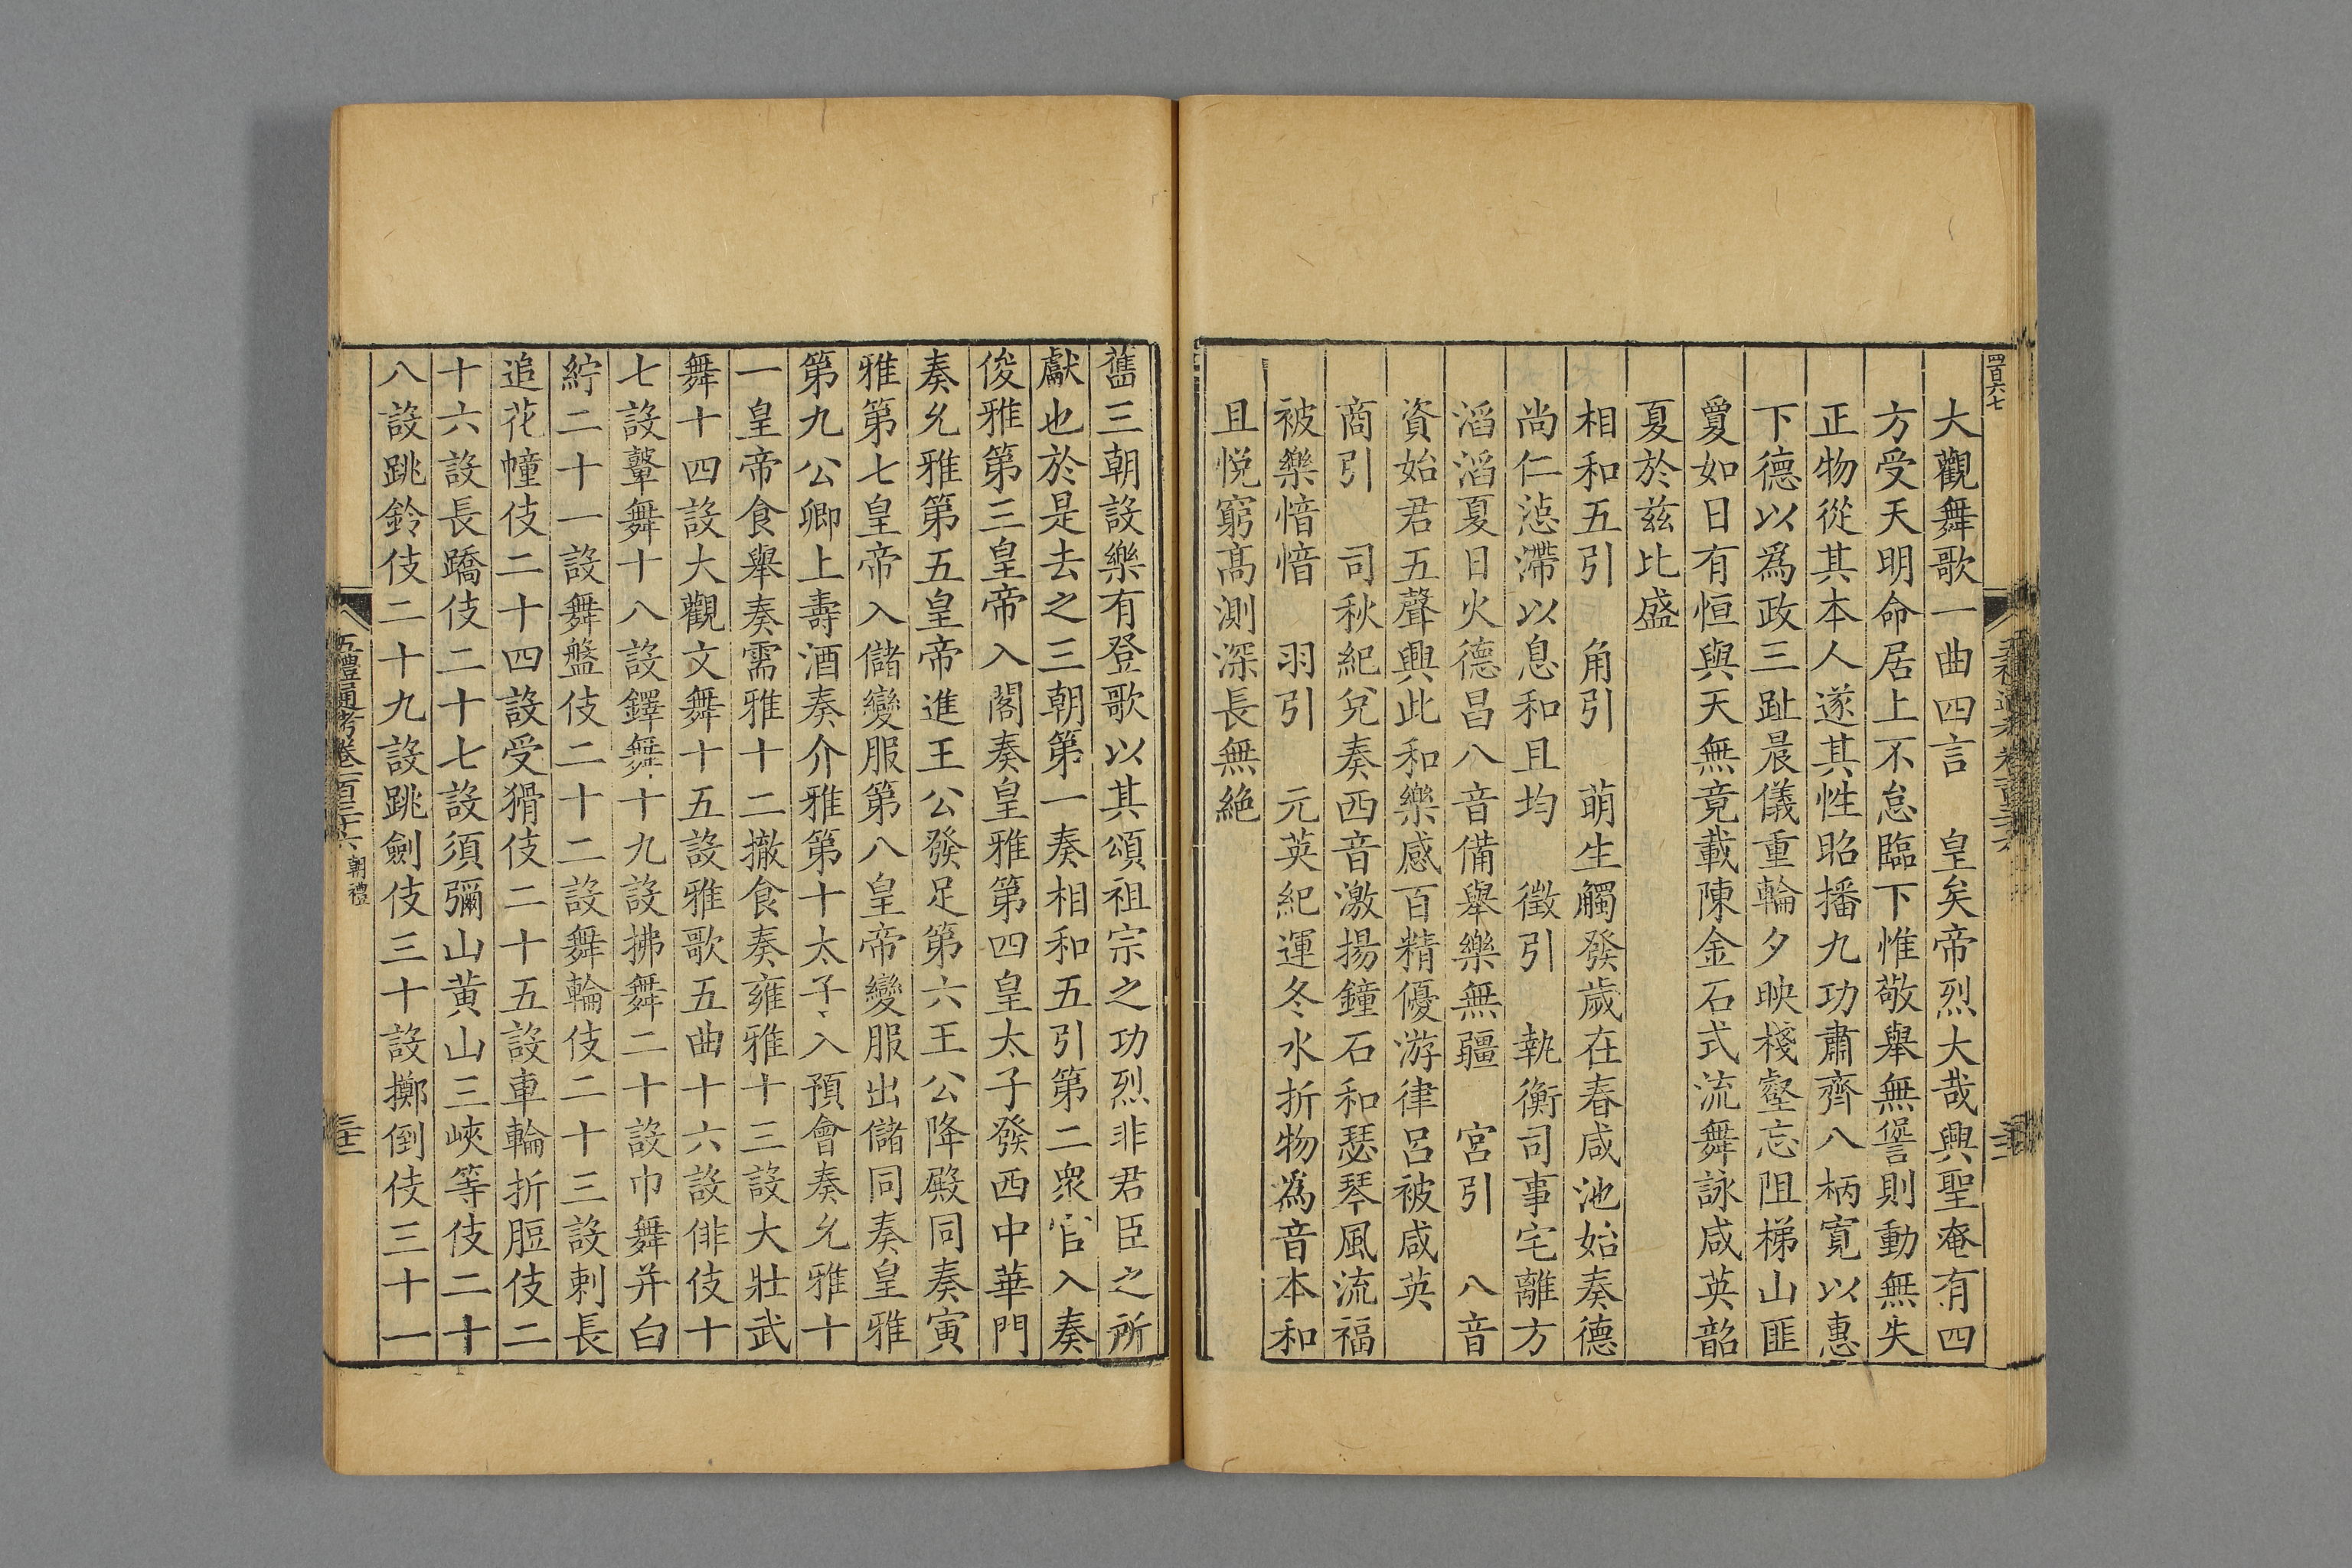 四百六七
大觀舞歌一曲四言　皇矣帝烈大哉興聖奄有四
方受天明命居上不怠臨下惟敬舉無諐則動無失
正物從其本人遂其性昭播九功肅齊八柄寬以惠
下德以爲政三趾晨儀重輪夕映棧壑忘阻梯山匪
敻如日有恒與天無竟載陳金石式流舞詠咸英韶
夏於兹比盛
相和五引　角引　萌生觸發歲在春咸池始奏德
尚仁惉滯以息和且均　徵引　執衡司事宅離方
滔滔夏日火德昌八音備舉樂無疆　宮引　八音
資始君五聲興此和樂感百精優游律呂被咸英
商引　司秋紀兌奏西音激揚鐘石和瑟琴風流福
被樂愔愔　羽引　元英紀運冬水折物為音本和
且悅窮髙測深長無絶
舊三朝設樂有登歌以其頌祖宗之功烈非君臣之所
獻也於是去之三朝第一奏相和五引第二衆官入奏
俊雅第三皇帝入閣奏皇雅第四皇太子發西中華門
奏允雅第五皇帝進王公發足第六王公降殿同奏寅
雅第七皇帝入儲變服第八皇帝變服出儲同奏皇雅
第九公卿上壽酒奏介雅第十太子入預會奏允雅十
一皇帝食舉奏需雅十二撤食奏雍雅十三設大壯武
舞十四設大觀文舞十五設雅歌五曲十六設俳伎十
七設鼙舞十八設鐸舞十九設拂舞二十設巾舞并白
紵二十一設舞盤伎二十二設舞輪伎二十三設刺長
追花幢伎二十四設受猾伎二十五設車輪折脰伎二
十六設長蹻伎二十七設須彌山黄山三峽等伎二十
八設跳鈴伎二十九設跳劍伎三十設擲倒伎三十一
五禮通考卷一百三十六 朝禮